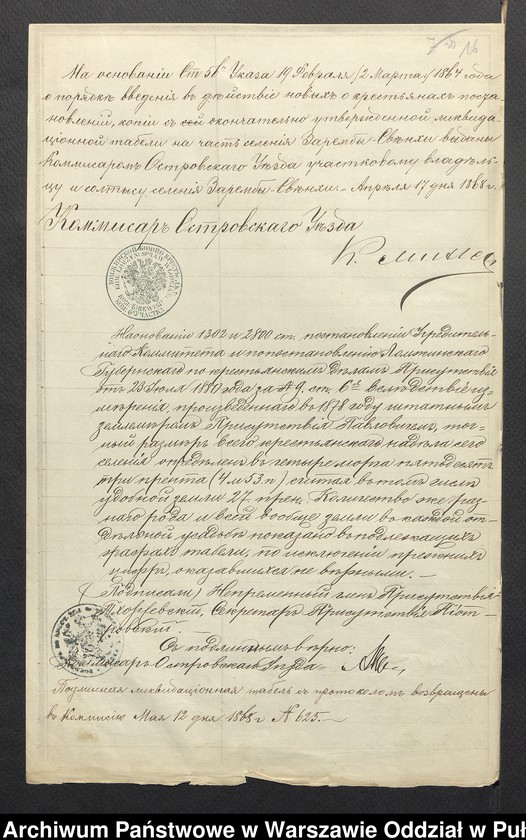 16
На основаніи Ст 56 Указа 19 Февраля /2 Марта/ 1864 года
о порядкѣ введенія въ дѣйствіе новыхъ о крестьянахъ поста-
новленій, копіи съ сей окончательно утвержденной ликвида-
ціонной табели на часть селенія Зарембы-Свѣнхи выданы
Коммисаромъ Островскаго Уѣзда участковому владѣль-
цу и солтысу селенія Зарембы-Свѣнхи. Апрѣля 17 дня 1868 г.
Коммисаръ Островскаго Уѣзда
На основаніи 1302 и 2800 ст. постановленій Учредитель-
наго Комитета и по постановленію Ломжинскаго
Губернскаго по крестьянскимъ дѣламъ Присутствія
отъ 23 Іюля 1880 года за № 9, ст. 6й вслѣдствіе из-
мѣренія, произведеннаго въ 1878 году штатнымъ
землемѣромъ Присутствія Павловичемъ, точ-
ный размѣръ всего крестьянскаго надѣла сего
селенія опредѣленъ въ четыре морга пятьдесятъ
три прента (4 м 53 п) считая въ томъ числѣ
удобной земли 27 прен. Количество же раз-
наго рода и всей вообще земли въ каждой от-
дѣльной усадьбѣ показано въ подлежащихъ
графахъ табели, по исключеніи прежнихъ
цифръ, оказавшихся не вѣрными. —
(Подписали) Непремѣнный членъ Присутствія
Тхоржевскій, Секретарь Присутствія Піот-
ровскій.
Съ подлиннымъ вѣрно:
Коммисаръ Островскаго Уѣзда
Подлинная ликвидаціонная табель съ протоколомъ возвращены
въ Комисію Мая 12 дня 1868 г № 625. —
Archiwum Państwowe w Warszawie Oddział w Puł